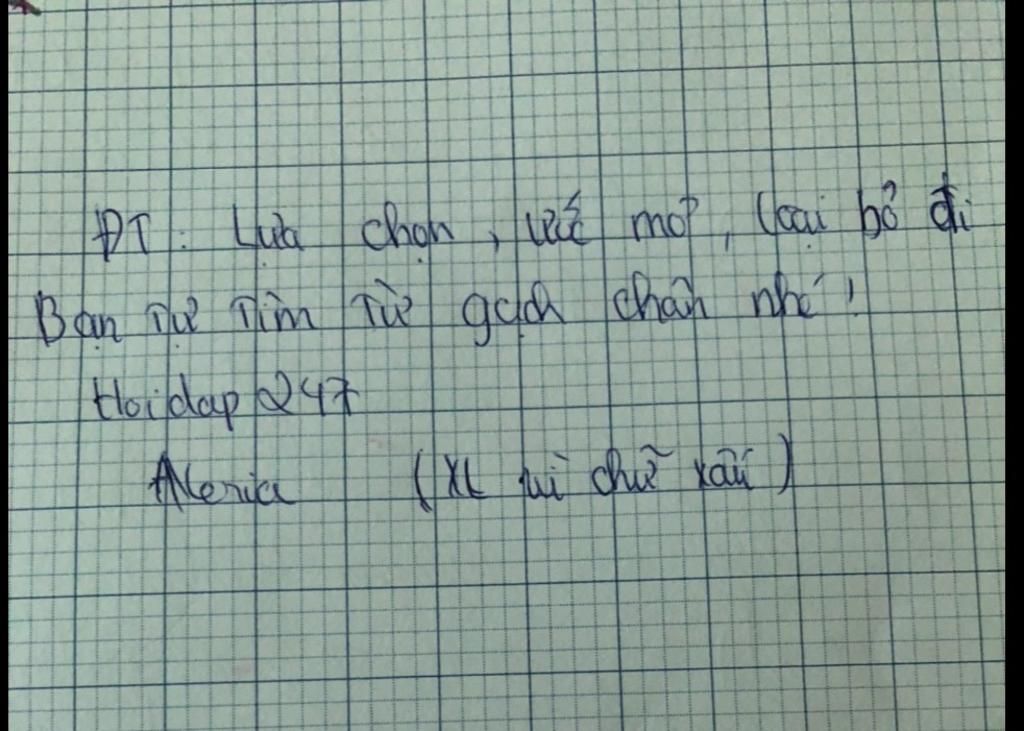 ĐT: Lựa chọn, viết mở, loại bỏ đi
Bạn tự tìm từ gạch chân nhé!
Hoidap 247
(XL vì chữ xấu)